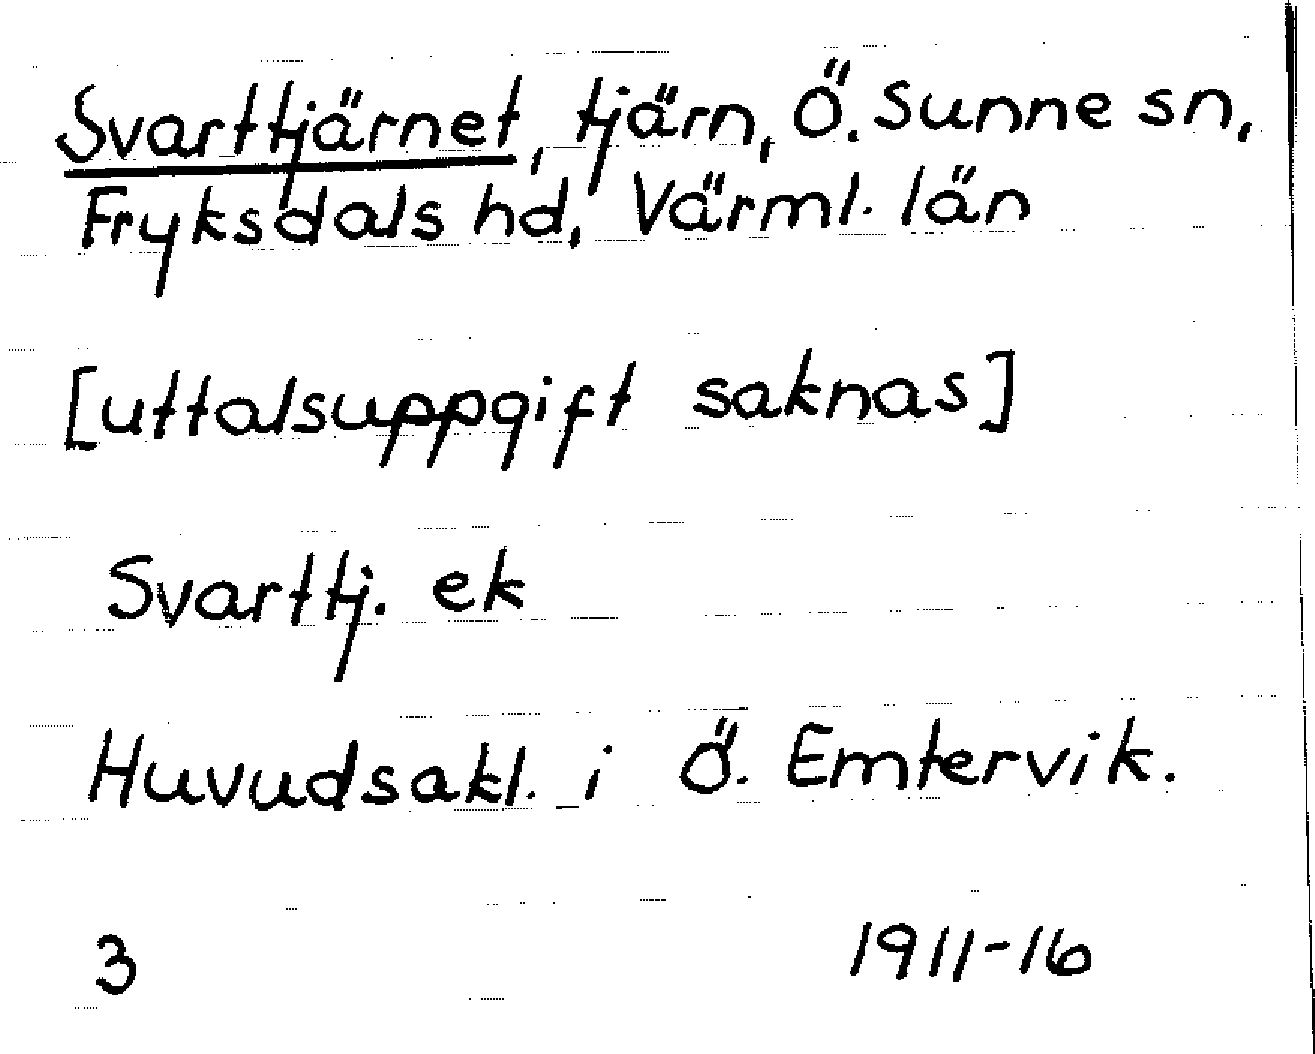 Svarttjärnet, tjärn, Ö. Sunne sn,
Fryksdals hd, Värml. län
[uttalsuppgift saknas]
Svarttj. ek
Huvudsakl. i Ö. Emtervik.
3 1911-16